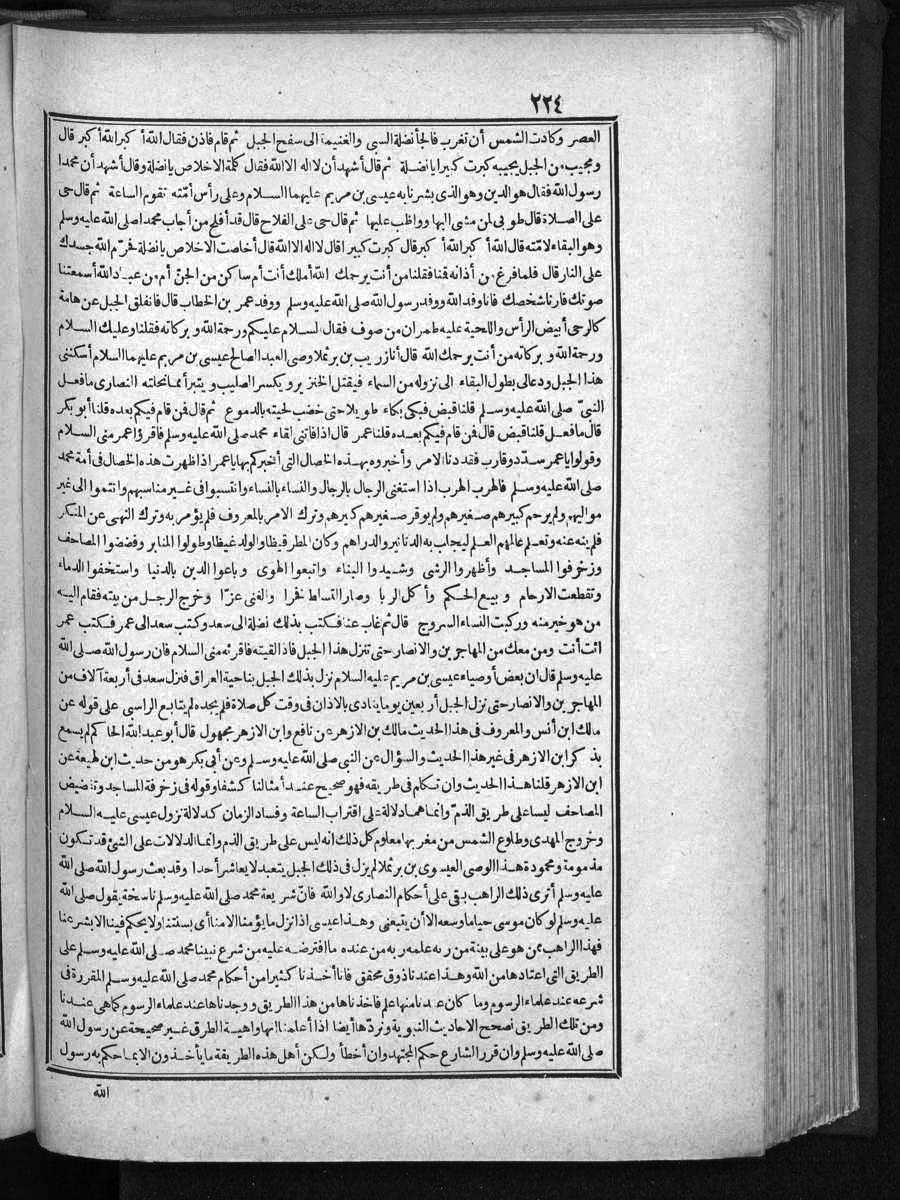 ٢٢٤
العصر وكادت الشمس أن تغرب فالجأ نضلة السبى والغنيمة الى سفح الجبل ثم قام فاذن فقال الله أكبر الله أكبر قال
ومجيب من الجبل يجيبه كبرت كبيرا يا نضلة ثم قال أشهد أن لا اله الا الله فقال كلمة الاخلاص يا نضلة وقال أشهد أن محمدا
رسول الله فقال هو الدين وهو الذى بشرنا به عيسى بن مريم عليهما السلام وعلى رأس أمّته تقوم الساعة ثم قال حى
على الصلاة قال طوبى لمن مشى اليها وواظب عليها ثم قال حى على الفلاح قال قد أفلح من أجاب محمدا صلى الله عليه وسلم
وهو البقاء لامّته قال الله أكبر الله أكبر قال كبرت كبيرا قال لا اله الا الله قال أخلصت الاخلاص يا نضلة فحرّم الله جسدك
على النار قال فلما فرغ من أذانه قمنا فقلنا من أنت يرحمك الله أملك أنت أم ساكن من الجنّ أم من عباد الله أسمعتنا
صوتك فارنا شخصك فانا وفد الله ووفد رسول الله صلى الله عليه وسلم ووفد عمر بن الخطاب قال فانفلق الجبل عن هامة
كالرحى أبيض الرأس واللحية عليه طمران من صوف فقال السلام عليكم ورحمة الله وبركاته فقلنا وعليك السلام
ورحمة الله وبركاته من أنت يرحمك الله قال أنا زريب بن برثملا وصى العبد الصالح عيسى بن مريم عليهما السلام أسكننى
هذا الجبل ودعالى بطول البقاء الى نزوله من السماء فيقتل الخنزير ويكسر الصليب ويتبرأ مما نحلته النصارى ما فعل
النبىّ صلى الله عليه وسلم قلنا قبض فبكى بكاء طويلا حتى خضب لحيته بالدموع ثم قال فمن قام فيكم بعده قلنا أبو بكر
قال ما فعل قلنا قبض قال فمن قام فيكم بعده قلنا عمر قال اذا فاتنى لقاء محمد صلى الله عليه وسلم فاقرؤا عمر منى السلام
وقولوا يا عمر سدّد وقارب فقد دنا الامر وأخبروه بهذه الخصال التى أخبركم بها يا عمر اذا ظهرت هذه الخصال فى أمة محمد
صلى الله عليه وسلم فالهرب الهرب اذا استغنى الرجال بالرجال والنساء بالنساء وانتسبوا فى غير مناسبهم وانتموا الى غير
مواليهم ولم يرحم كبيرهم صغيرهم ولم يوقر صغيرهم كبيرهم وترك الامر بالمعروف فلم يؤمر به وترك النهى عن المنكر
فلم ينه عنه وتعلم عالمهم العلم ليجلب به الدنانير والدراهم وكان المطر قيظا والولد غيظا وطولوا المنابر وفضضوا المصاحف
وزخرفوا المساجد وأظهروا الرشى وشيدوا البناء واتبعوا الهوى وباعوا الدين بالدنيا واستخفوا الدماء
وتقطعت الارحام وبيع الحكم وأكل الربا وصار التساط فخرا والغنى عزّا وخرج الرجل من بيته فقام اليه
من هو خير منه وركبت النساء السروج قال ثم غاب عنا فكتب بذلك نضلة الى سعد وكتب سعد الى عمر فكتب عمر
ائت أنت ومن معك من المهاجرين والانصار حتى تنزل هذا الجبل فاذا لقيته فاقرئه منى السلام فان رسول الله صلى الله
عليه وسلم قال ان بعض أوصياء عيسى بن مريم عليه السلام نزل بذلك الجبل بناحية العراق فنزل سعد فى أربعة آلاف من
المهاجرين والانصار حتى نزل الجبل أربعين يوما ينادى بالاذان فى وقت كل صلاة فلم يجده لم يتابع الراسبى على قوله عن
مالك ابن أنس والمعروف فى هذا الحديث مالك بن الازهر عن نافع وابن الازهر مجهول قال أبو عبد الله الحاكم لم يسمع
بذكر ابن الازهر فى غير هذا الحديث والسؤال عن النبى صلى الله عليه وسلم وعن أبى بكر هو من حديث ابن لهيعة عن
ابن الازهر قلنا هذا الحديث وان تكلم فى طريقه فهو صحيح عند أمثالنا كشفا وقوله فى زخرفة المساجد وتفضيض
المصاحف ليسا على طريق الذمّ وانما هما دلالة على اقتراب الساعة وفساد الزمان كدلالة نزول عيسى عليه السلام
وخروج المهدى وطلوع الشمس من مغربها معلوم كل ذلك انه ليس على طريق الذم وانما الدلالات على الشئ قد تكون
مذمومة ومحمودة هذا الوصى العيسوى بن برثملا لم يزل فى ذلك الجبل يتعبد لا يعاشر أحدا وقد بعث رسول الله صلى الله
عليه وسلم أترى ذلك الراهب بقى على أحكام النصارى لا والله فانّ شريعة محمد صلى الله عليه وسلم ناسخة يقول صلى الله
عليه وسلم لو كان موسى حيا ما وسعه الا أن يتبعنى وهذا عيسى اذا نزل ما يؤمنا الا منا أى بسنتنا ولا يحكم فينا الا بشرعنا
فهذا الراهب ممن هو على بينة من ربه علمه ربه من عنده ما افترضه عليه من شرع نبينا محمد صلى الله عليه وسلم على
الطريق التى اعتادها من الله وهذا عندنا ذوق محقق فانا أخذنا كثيرا من أحكام محمد صلى الله عليه وسلم المقررة فى
شرعه عند علماء الرسوم وما كان عندنا منها علم فاخذناها من هذا الطريق ووجدناها عند علماء الرسوم كماهى عندنا
ومن تلك الطريق نصحح الاحاديث النبوية ونردّها أيضا اذا أعلمنا انها واهية الطرق غير صحيحة عن رسول الله
صلى الله عليه وسلم وان قرر الشارع حكم المجتهد وان أخطأ ولكن أهل هذه الطريقة ما يأخذون الا بما حكم به رسول
الله